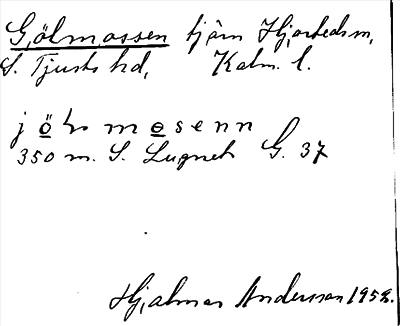 Gölmossen tjärn Hjorteds sn,
S. Tjusts hd, Kalm. l.
j ö l m o s e n n
350 m. S. Lugnet G. 37
Hjalmar Andersson 1952.